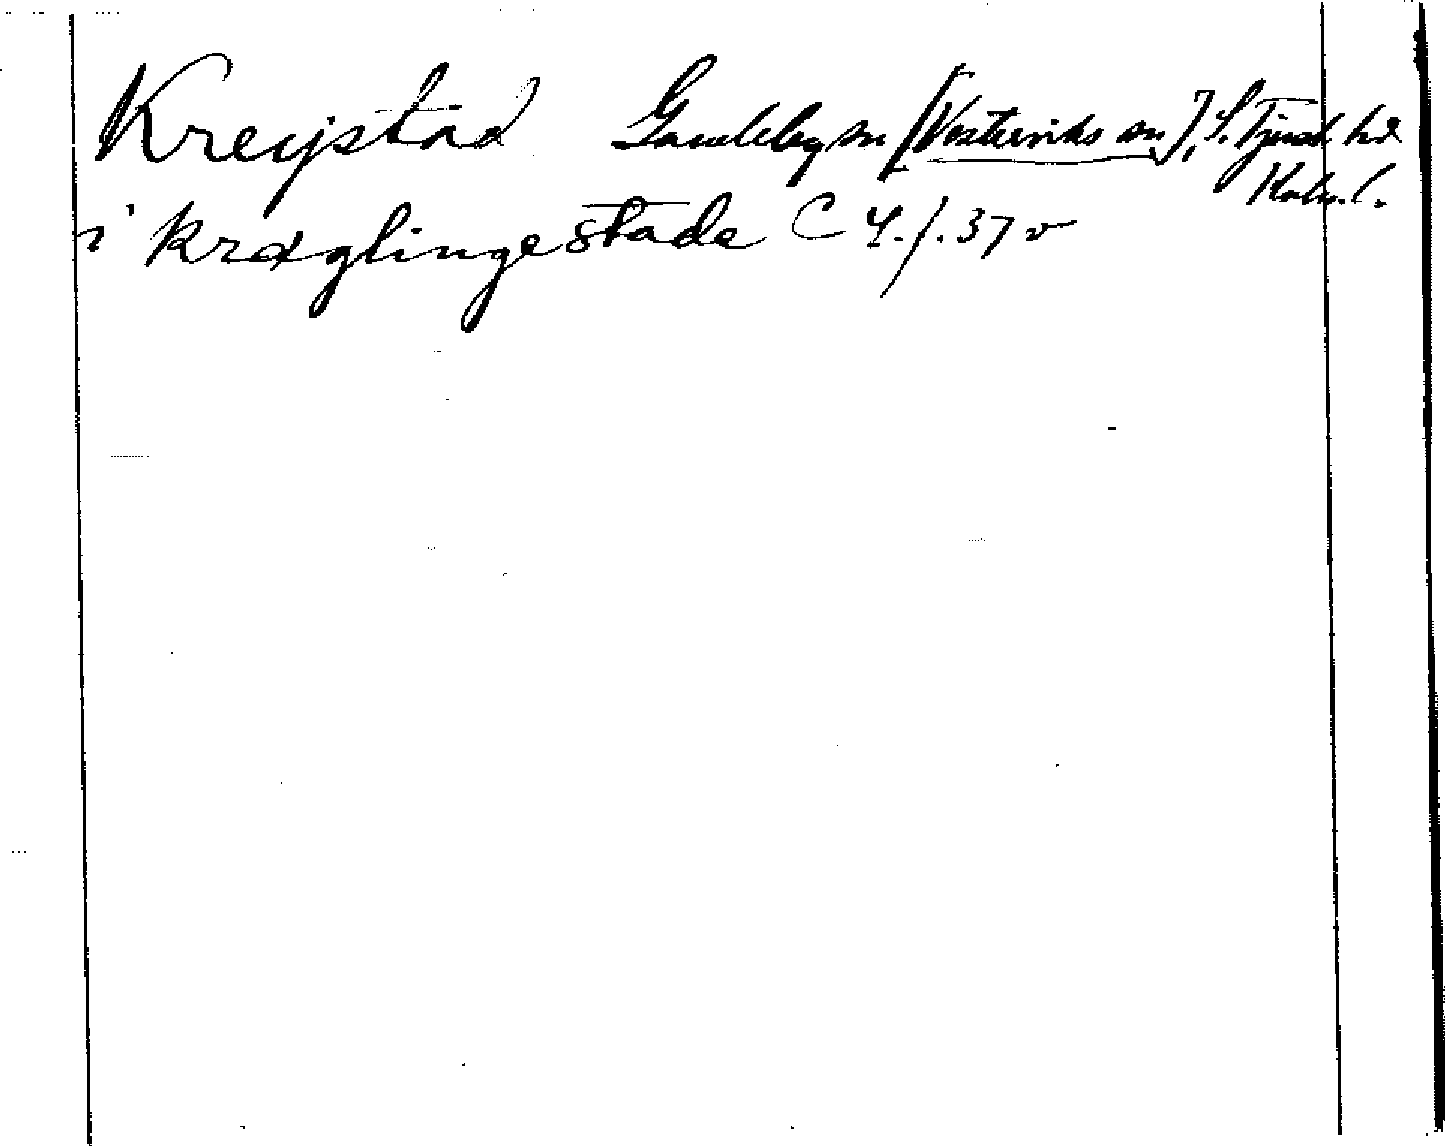 Kreystad Gamleby sn [Västerviks sn], S. Tjust hd
Kalm. l.
i kræglingestade C 4. f. 37 v